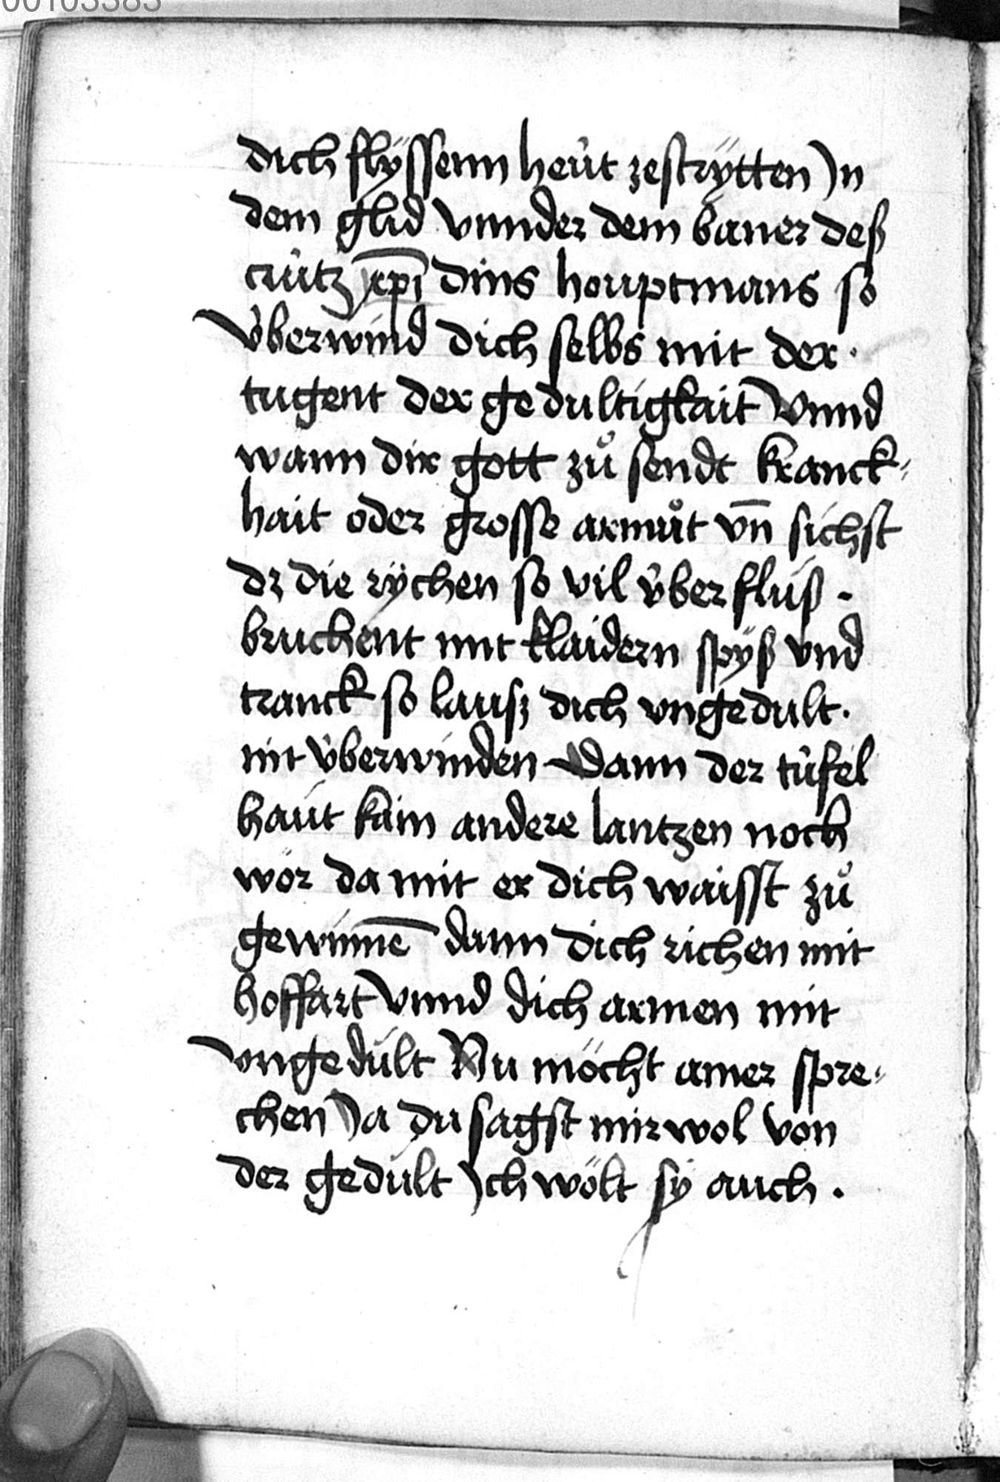 00103383
dich flÿssenn heűt zestrÿtten Jn
dem glid vnnder dem baner deß
crűtz xp̄i dins houptmans so
v̊berwind dich selbs mit der ·
tugent der gedultigkait Vnnd
wann dir gott zů sendt kranck-
hait oder grosse armůt vn̄ sichst
dz die rÿchen so vil v̊ber fluß .
bruchent mit klaidern spÿß vnd
tranck so lausz dich vngedult .
nit v̊berwinden Dann der tűfel
haut kain andere lantzen noch
wör da mit er dich waisst zů
gewinnē dann dich richen mit
hoffart Vnnd dich armen mit
vngedult Nu möcht ainer spre-
chen Ja du sagst mir wol von
der gedult Jch wölt sÿ auch .